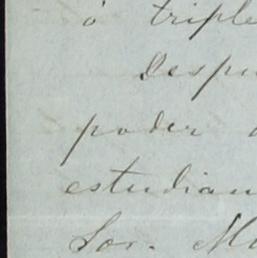 ó triple
Despu
poder
estudian
Sor. M